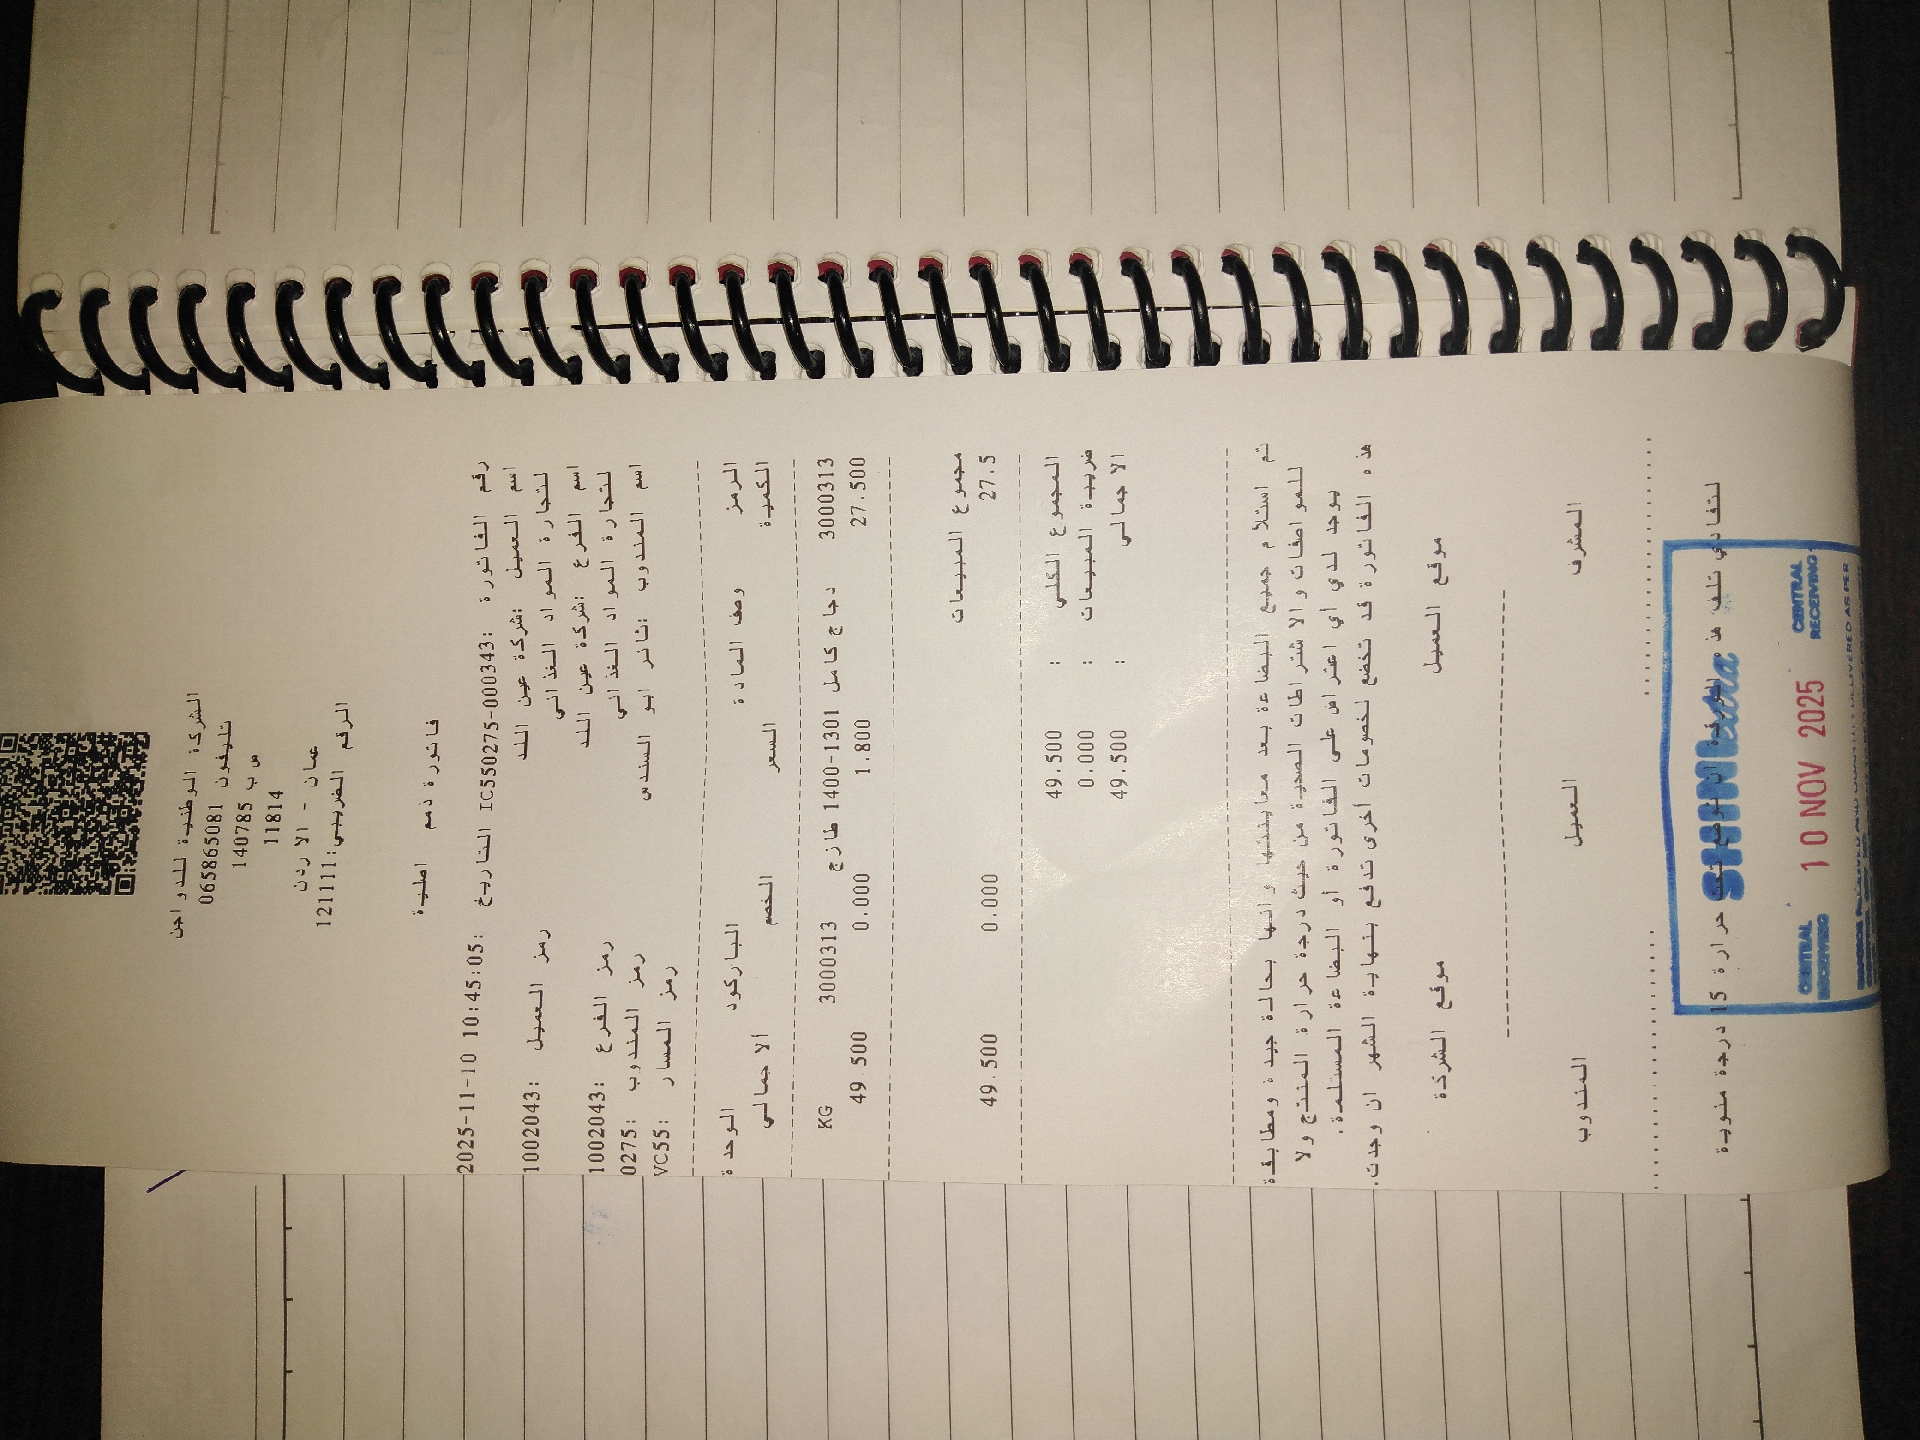 الشركة الوطنية للدواجن
تليفون 065865081
ص ب 140785
11814
عمان - الاردن
الرقم الضريبي:121111
فاتورة ذمم اصلية
رقم الفاتورة :IC550275-000343 التاريخ :2025-11-10 10:45:05
اسم العميل :شركة عين اللد رمز العميل :1002043
لتجارة المواد الغذائي
اسم الفرع :شركة عين اللد رمز الفرع :1002043
لتجارة المواد الغذائي
اسم المندوب :ثائر ابو السندس رمز المندوب :0275
رمز المسار :VC55
الرمز وصف المادة الباركود الوحدة
الكمية السعر الخصم الاجمالي
3000313 دجاج كامل 1301-1400 طازج 3000313 KG
27.500 1.800 0.000 49.500
مجموع المبيعات
27.5 0.000 49.500
المجموع الكلي : 49.500
ضريبة المبيعات : 0.000
الاجمالي : 49.500
تم استلام جميع البضاعة بعد معاينتها وانها بحالة جيدة ومطابقة
للمواصفات والاشتراطات الصحية من حيث درجة حرارة المنتج ولا
يوجد لدي اي اعتراض على الفاتورة أو البضاعة المستلمة.
هذه الفاتورة قد تخضع لخصومات أخرى تدفع بنهاية الشهر ان وجدت.
موقع العميل موقع الشركة
المشرف العميل المندوب
لتفادي تلف هذه الورقة ان توضع تحت حرارة 15 درجة مئوية
CENTRAL RECEIVING 10 NOV 2025 CENTRAL RECEIVING